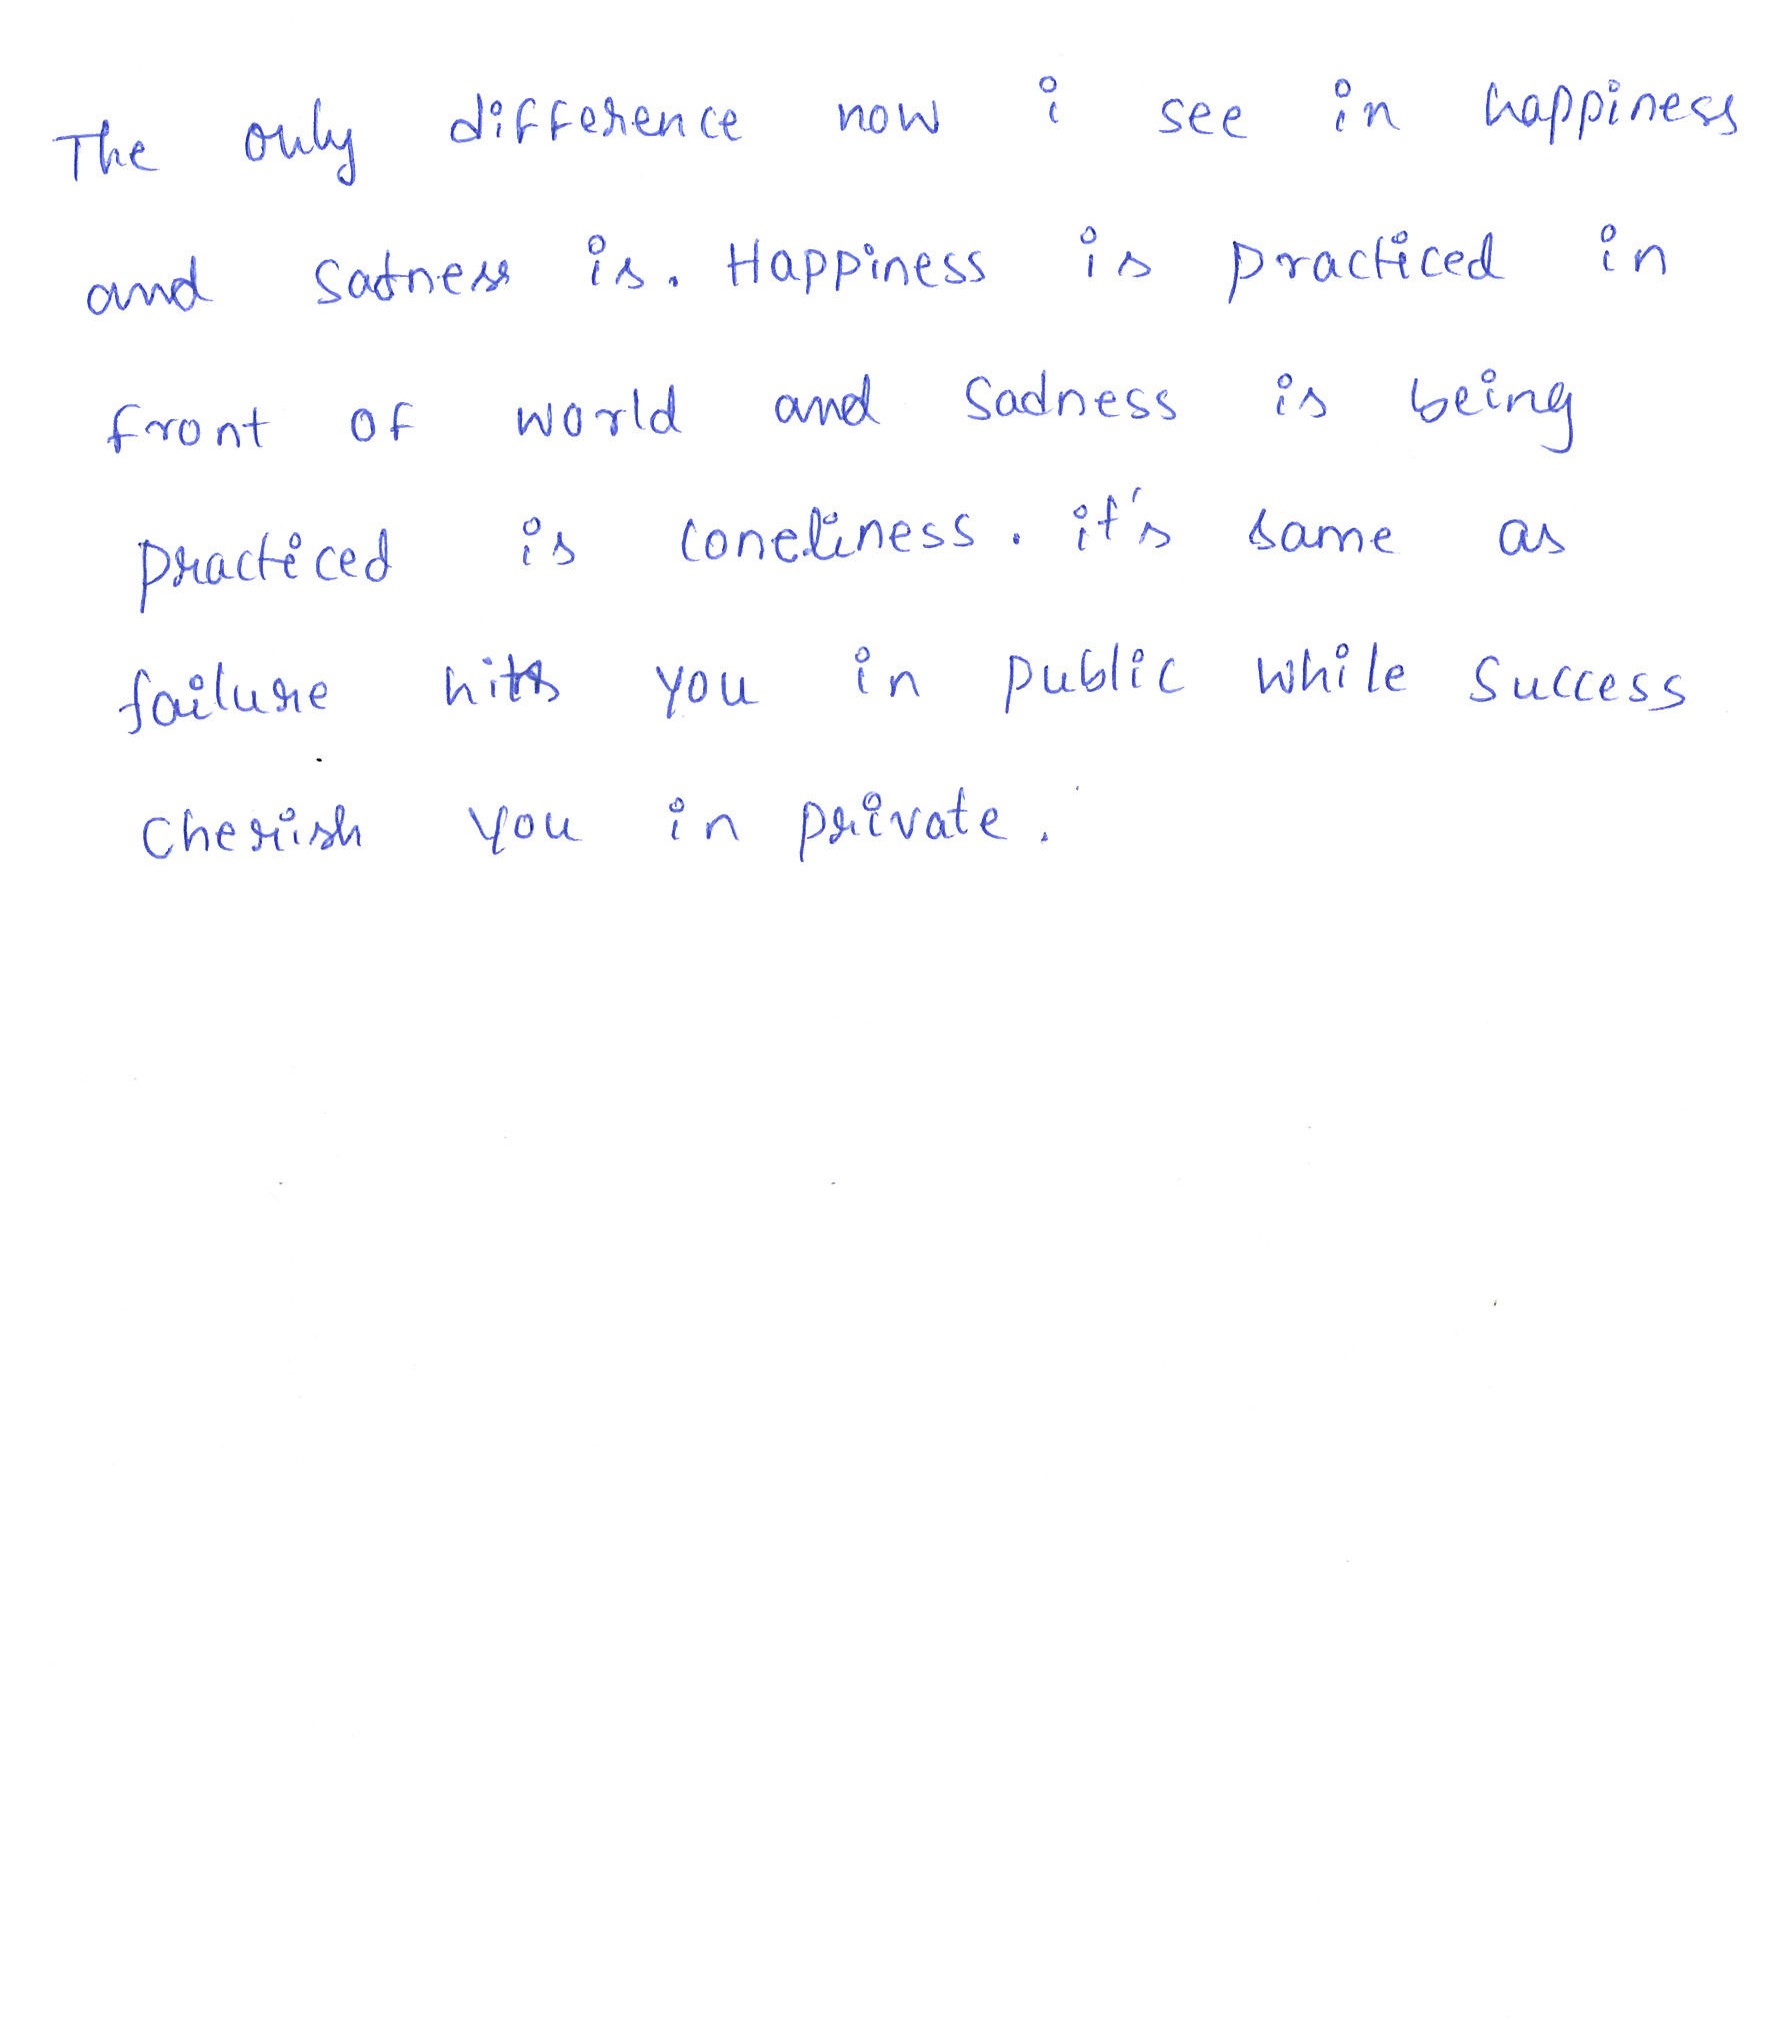 The only difference now i see in happiness
and satness is. Happiness is practiced in
front of world and sadness is being
practiced is loneliness. it's same as
failure hits you in public while success
cherish you in private.